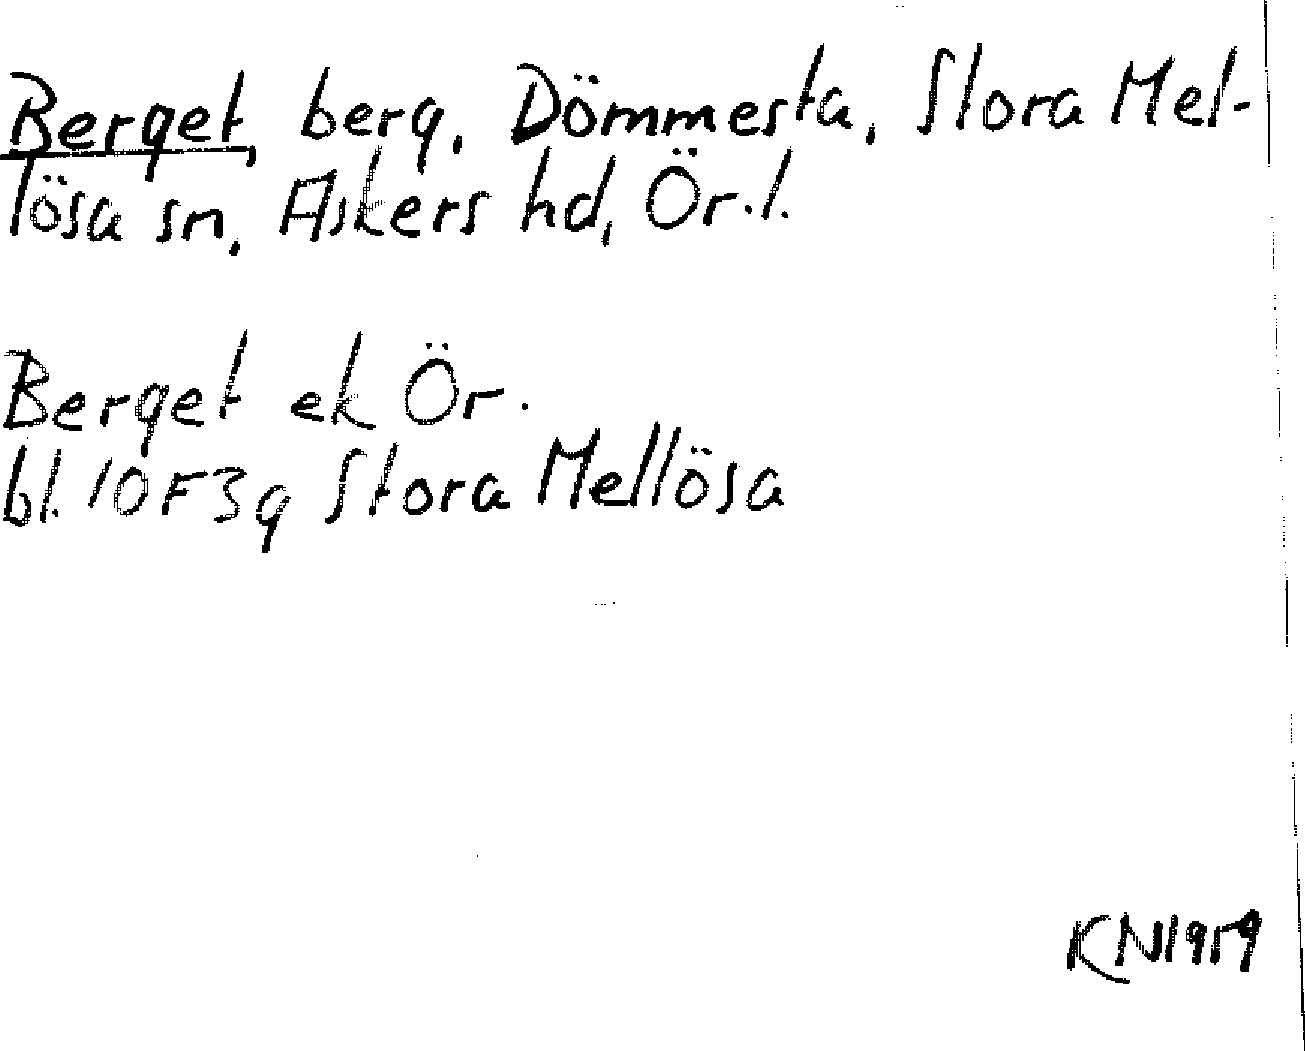 Berget, berg, Dömmesta, Stora Mel-
lösa sn, Askers hd, Ör. l.
Berget ek Ör.
bl. 10F3g Stora Mellösa
KN1959